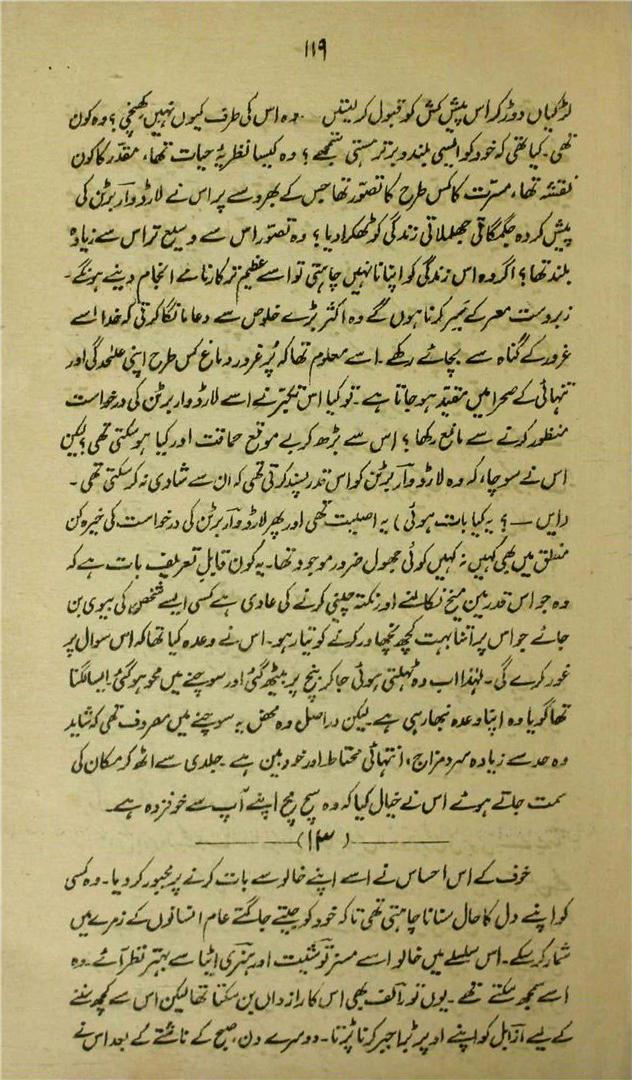 ۱۱۹
لڑکیاں دوڑ کر اس پیش کش کو قبول کر لیتیں وہ اس کی طرف کیوں نہیں کھنچی؟ وہ کون
تھی۔ کیا تھی کہ خود کو ایسی بلند و برتر ہستی سمجھے؟ وہ کیسا نظریۂ حیات تھا، مقدر کا کون
نقشہ تھا، مسرت کا کس طرح کا تصور تھا جس کے بھروسے پر اس نے لارڈ واربرٹن کی
پیش کردہ جگمگاتی جھلملاتی زندگی کو ٹھکرا دیا؟ وہ تصور اس سے وسیع تر اس سے زیادہ
بلند تھا؟ اگر وہ اس زندگی کو اپنانا نہیں چاہتی تو اسے عظیم تر کارنامے انجام دینے ہونگے۔
زبردست معرکے سر کرنا ہوں گے وہ اکثر بڑے خلوص سے دعا مانگا کرتی کہ خدا اسے
غرور کے گناہ سے بچائے رکھے۔ اسے معلوم تھا کہ پُر غرور دماغ کس طرح اپنی علٰحدگی اور
تنہائی کے صحرا میں مقید ہو جاتا ہے۔ تو کیا اس تکبر نے اسے لارڈ واربرٹن کی درخواست
منظور کرنے سے مانع رکھا؟ اس سے بڑھ کر بے موقع حماقت اور کیا ہو سکتی تھی؟ لیکن
اس نے سوچا، کہ وہ لارڈ واربرٹن کو اس قدر پسند کرتی تھی کہ ان سے شادی نہ کر سکتی تھی۔
(ایں — ؟ یہ کیا بات ہوئی) یہ اصلیت تھی اور پھر لارڈ واربرٹن کی درخواست کی خیرہ کن
منطق میں بھی کہیں نہ کہیں کوئی جھول ضرور موجود تھا۔ یہ کون قابلِ تعریف بات ہے کہ
وہ جو اس قدر مین میخ نکالنے اور نکتہ چینی کرنے کی عادی ہے کسی ایسے شخص کی بیوی بن
جائے جو اس پر اتنا بہت کچھ نچھاور کرنے کو تیار ہو۔ اس نے وعدہ کیا تھا کہ اس سوال پر
غور کرے گی۔ لہٰذا اب وہ ٹہلتی ہوئی جا کر بنچ پر بیٹھ گئی اور سوچنے میں محو ہو گئی، ایسا لگتا
تھا گویا وہ اپنا وعدہ نبھا رہی ہے۔ لیکن دراصل وہ محض یہ سوچنے میں مصروف تھی کہ شاید
وہ حد سے زیادہ سرد مزاج، انتہائی محتاط اور خود بین ہے۔ جلدی سے اٹھ کر مکان کی
سمت جاتے ہوئے اس نے خیال کیا کہ وہ سچ مچ اپنے آپ سے خوفزدہ ہے۔
(۱۳)
خوف کے اس احساس نے اسے اپنے خالو سے بات کرنے پر مجبور کر دیا۔ وہ کسی
کو اپنے دل کا حال سنانا چاہتی تھی تاکہ خود کو جیتے جاگتے عام انسانوں کے زمرے میں
شمار کر سکے۔ اس سلسلے میں خالو اسے مسز توشیت اور ہنری ایٹا سے بہتر نظر آئے۔ وہ
اسے سمجھ سکتے تھے۔ یوں تو رالف بھی اس کا راز داں بن سکتا تھا لیکن اس سے کچھ سننے
کے لیے ازابل کو اپنے اوپر بڑا جبر کرنا پڑتا۔ دوسرے دن، صبح کے ناشتے کے بعد اس نے